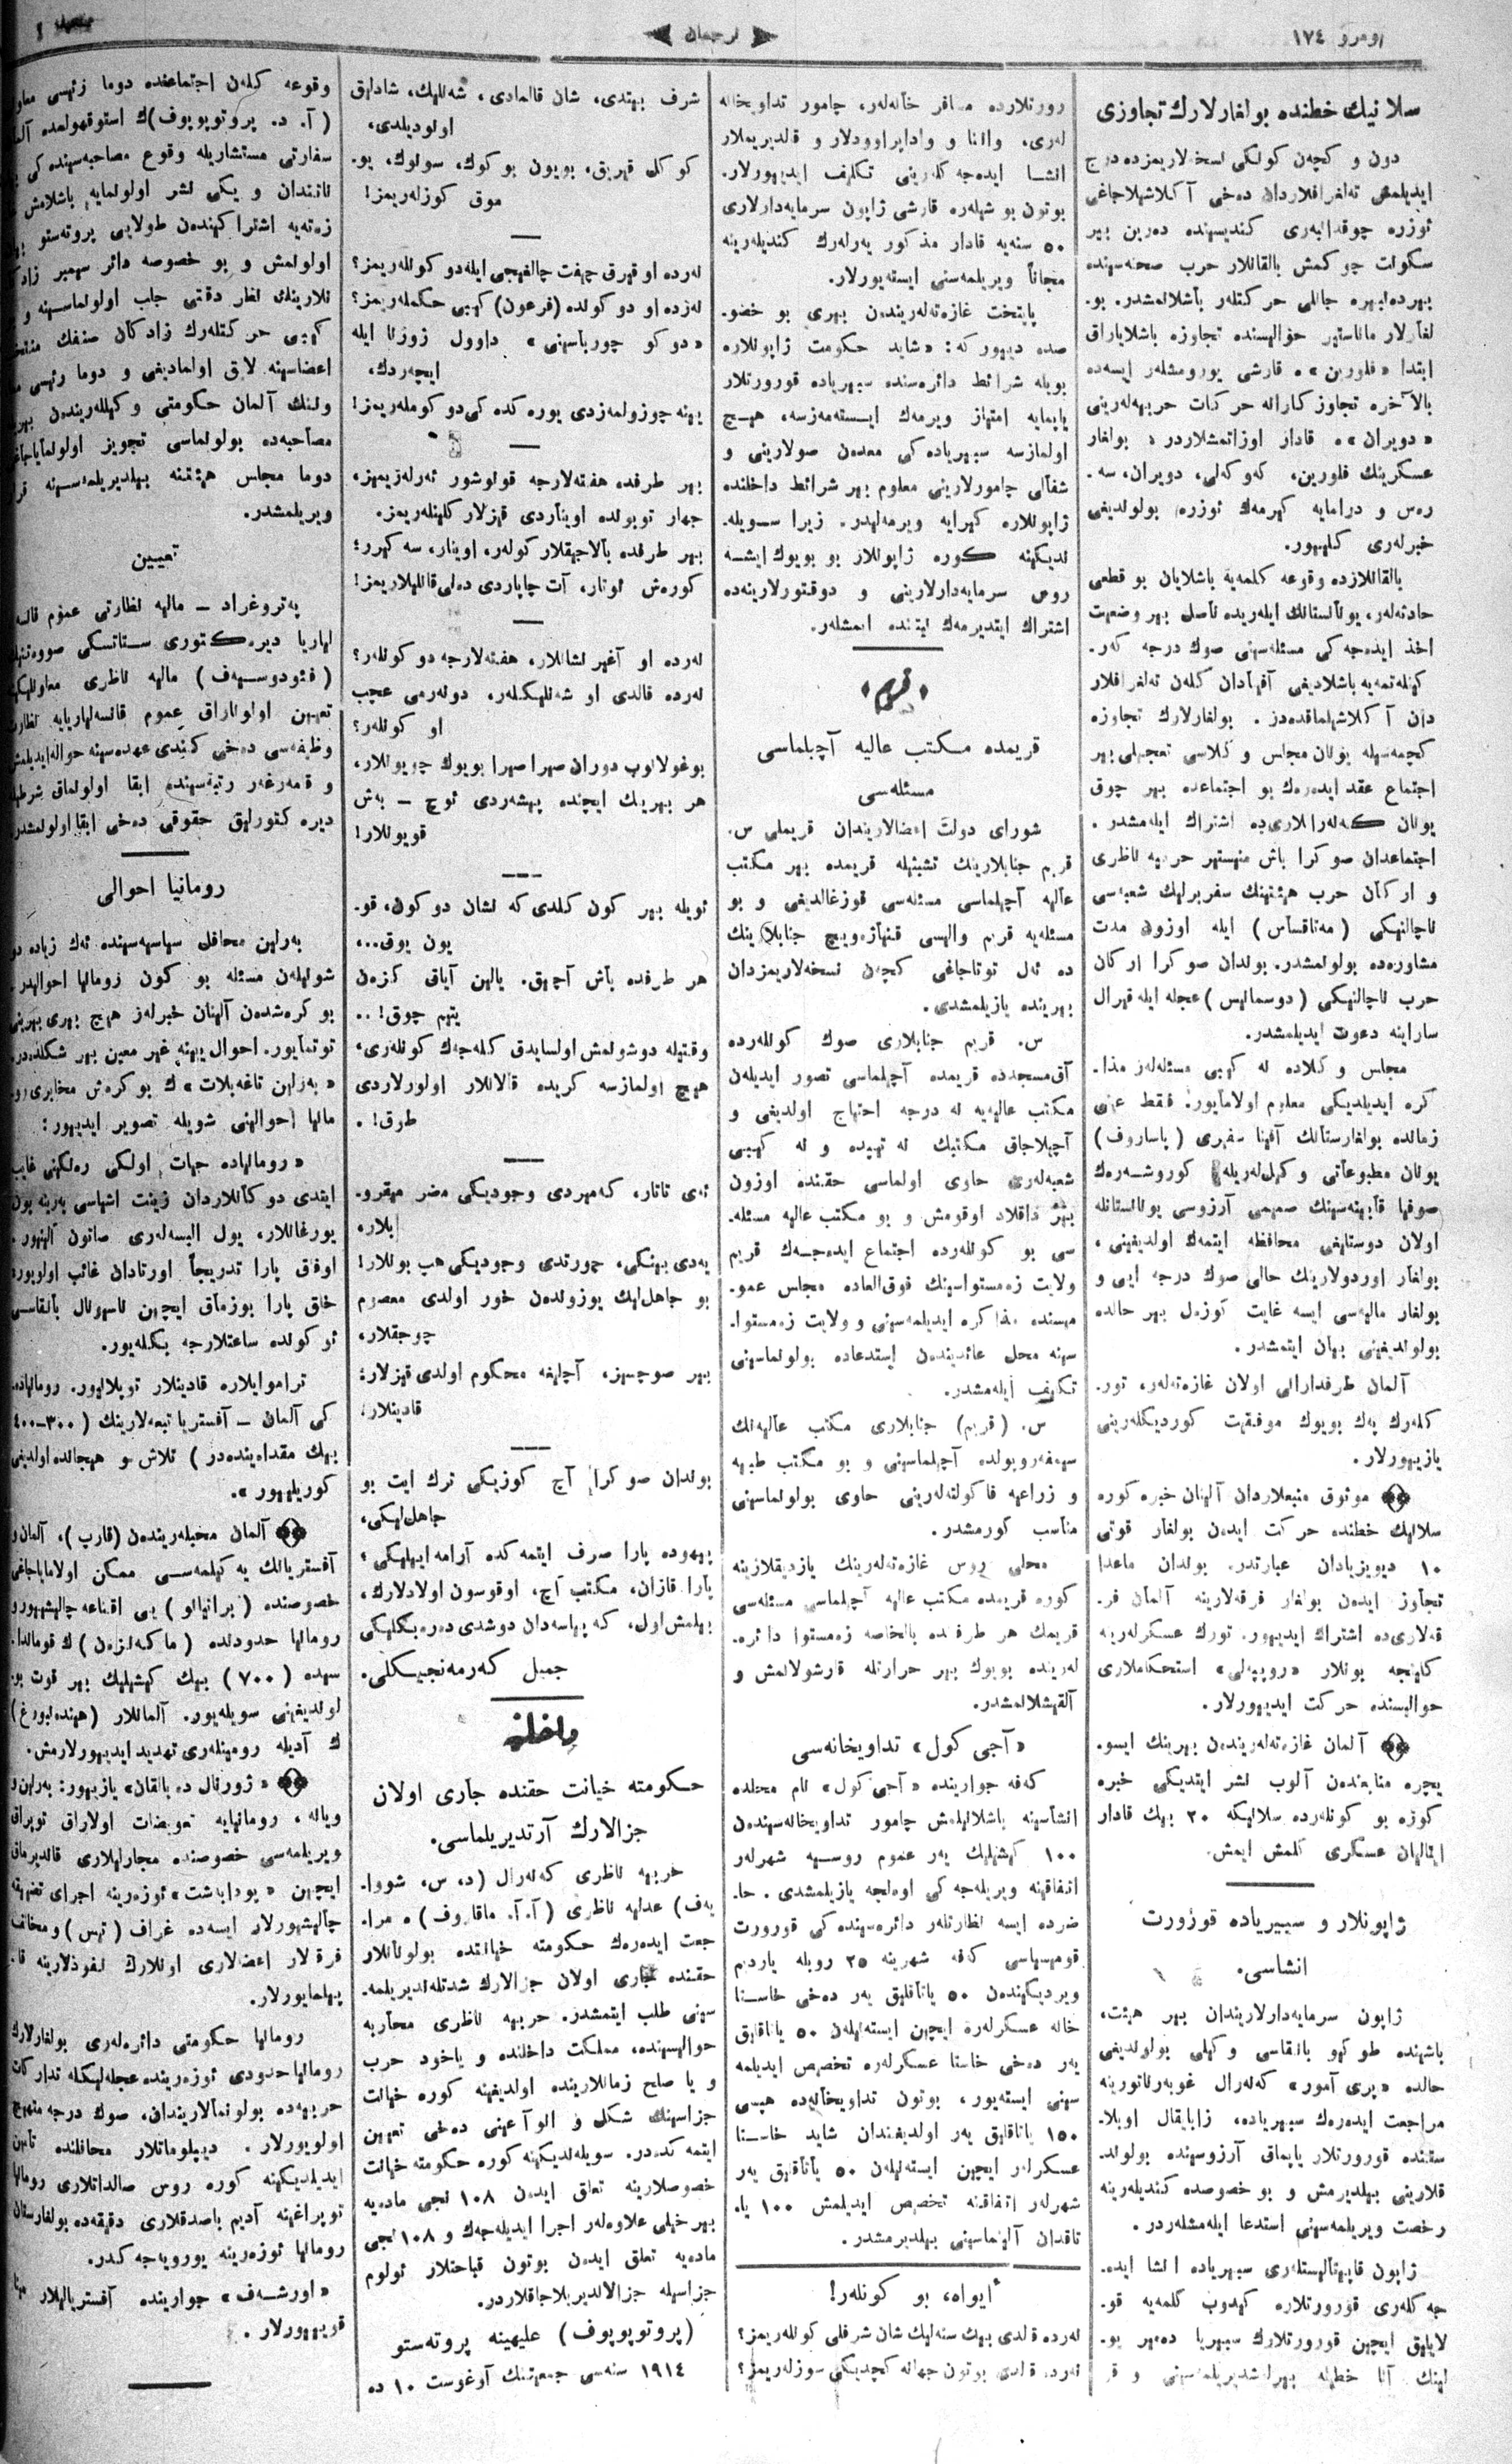 نومرو ١٧٤
ترجمان
سلانيك خطنده بولغارلارك تجاوزی
دون و كچەن كونكی نسخەلاريمزدە درج
ايديلمش تەلغرافلاردان دەخی آكلاشيلاجاغی
ئوزره چوقدانبەری كنديسيندە دەرين بير
سكوت چوكمش بالقانلار حرب صحنەسيندە
بيردەنبيره جانلی حركتلەر باشلانمشدر. بو-
لغارلار ماناستير حواليسنده تجاوزه باشلاياراق
ابتدا «فلورين» ه قارشی يورومشلەر ايسەده
بالآخره تجاوزكارانه حركات حربيەلەرينی
«دويران» ه قادار اوزاتمشلاردر. بولغار
عسكرينك فلورين، كەوكەلی، دويران، سە-
رەس و درامايه كيرمەك ئوزره بولولديغی
خبرلەری كليیور.
بالقانلارده وقوعه كلمەيه باشلايان بو قطعی
حادثەلەر، يونانستانك ايلەريده ناصل بير وضعيت
اخذ ايدەجەكی مسئلەسينی صوك درجه كەر-
كينلەتمەيه باشلاديغی آفينادان كلەن تەلغرافلار
دان آكلاشيلماقدەدر. بولغارلارك تجاوزه
كچمەسيله يونان مجلس وكلاسی تعجيلی بير
اجتماع عقد ايدەرەك بو اجتماعده بير چوق
يونان كەنەراللاری ده اشتراك ايلەمشدر.
اجتماعدان صوكرا باش مينيستير حربيه ناظری
و اركان حرب هيئتينك سفربرلك شعبەسی
ناچالنيكی (مەتاقساس) ايله اوزون مدت
مشاورەده بولونمشدر. بوندان صوكرا اركان
حرب ناچالنيكی (دوسمانيس) عجله ايله قيرال
سراينه دعوت ايديلمشدر.
مجلس وكلاده نه كيبی مسئلەلەر مذا-
كره ايديلديكی معلوم اولامايور. فقط عينی
زمانده بولغارستانك آفينا سفيری (پاساروف)
يونان مطبوعاتی وكيللەريله كوروشەرەك
صوفيا قابينەسينك صميمی آرزوسی يونانستانله
اولان دوستليغی محافظه ايتمەك اولديغينی،
بولغار اوردولارينك حالی صوك درجه ايی و
بولغار ماليەسی ايسه غايت گوزەل بير حالده
بولولديغينی بيان ايتمشدر.
آلمان طرفدارانی اولان غازەتەلەر، تور-
كلەرك پەك بويوك موفقيت كوردیكلەرينی
يازييورلار.
موثوق منبعلاردان آلينان خبره كوره
سلانيك خطنده حركت ايدەن بولغار قوتی
١٠ ديويزيادان عبارتدر. بوندان ماعدا
تجاوز ايدەن بولغار فرقەلارينه آلمان فر-
قەلاری ده اشتراك ايدييور. تورك عسكرلەرينه
كلينجه بونلار «روپپەلی» استحكاملاری
حواليسنده حركت ايدييورلار.
آلمان غازەتەلەريندەن بيرينك ايسو-
يچره منابعندەن آلوب نشر ايتديكی خبره
كوره بو كونلەرده سلانيكه ٢٠ بيك قادار
ايتاليان عسكری كلمش ايمش.
ژاپونلار و سيبيرياده قورورت
انشاسی.
ژاپون سرمايەدارلاريندان بير هيئت،
باشينده طوكيو بانقاسی وكيلی بولولديغی
حالده «پری آمور» كەنەرال غوبەرناتورينه
مراجعت ايدەرەك سيبيرياده، زابايقال اوبلا-
ستنده قورورتلار ياپماق آرزوسينده بولولد-
قلارينی بيلديرمش و بو خصوصده كنديلەرينه
رخصت ويريلمەسينی استدعا ايلەمشلەردر.
ژاپون قاپيتاليستلەری سيبيرياده انشا ايدە-
جەكلەری قورورتلاره كيدوب كلمەيه قو-
لايليق ايچين قورورتلارك سيبيريا دەمير يو-
لينك آنا خطيله بيرلەشديريلمەسينی و
رورتلارده مسافر خانەلەر، چامور تداویخانه
لەری، واننا و واداپراوودلار و قالديريملار
انشا ايدەجەكلەرينی تكليف ايدييورلار.
بوتون بو شيلەره قارشی ژاپون سرمايەدارلاری
٥٠ سنەيه قادار مذكور يەرلەرك كنديلەرينه
مجاناً ويريلمەسنی ايستەيورلار.
پايتخت غازەتەلەريندەن بيری بو خصو-
صده دييور كه: «شايد حكومت ژاپونلاره
بويله شرائط دائرەسنده سيبيرياده قورورتلار
ياپمايه امتياز ويرمەك ايستەمەزسه، هيچ
اولمازسه سيبيريادەكی معدەن صولارينی و
شفالی چامورلارينی معلوم بير شرائط داخلنده
ژاپونلاره كيرايه ويرمەليدر. زيرا سويله-
نديكينه كوره ژاپونلار بو بويوك ايشه
روس سرمايەدارلارينی و دوقتورلارينەده
اشتراك ايتديرمەك نيتنده ايمشلەر.
قريم
قريمده مكتب عاليه آچيلماسی
مسئلەسی
شورای دولت اعضالاريندان قريملی س.
قريم جنابلارينك تشبثيله قريمده بير مكتب
عاليه آچيلماسی مسئلەسی قوزغالديغی و بو
مسئلەيه قريم واليسی قنيازەويچ جنابلارينك
ده ئەل توتاجاغی كچەن نسخەلاريمزدان
بيرينده يازيلمشدی.
س. قريم جنابلاری صوك كونلەرده
آقمسجدده قريمده آچيلماسی تصور ايديلەن
مكتب عاليەيه نه درجه احتياج اولديغی و
آچيلاجاق مكتبك نه تيپده و نه كيبی
شعبەلەری حاوی اولماسی حقنده اوزون
بير داقلاد اوقومش و بو مكتب عاليه مسئلە-
سی بو كونلەرده اجتماع ايدەجەك قريم
ولايت زەمستواسينك فوق العاده مجلس عمو-
ميسنده مذاكره ايديلمەسينی و ولايت زەمستوا-
سينه محل عائديندەن استدعاده بولونماسينی
تكليف ايلەمشدر.
س. (قريم) جنابلاری مكتب عاليەنك
سيمفەروپولده آچيلماسينی و بو مكتب طبيه
و زراعيه فاكولتەلەرينی حاوی بولونماسينی
مناسب كورمشدر.
محلی روس غازەتەلەرينك يازديقلارينه
كوره قريمده مكتب عاليه آچيلماسی مسئلەسی
قريمك هر طرفنده بالخاصه زەمستوا دائرە-
لەرينده بويوك بير حرارتله قارشولانمش و
آلقيشلانمشدر.
«آجی كول» تداویخانەسی
كەفه جوارينده «آجی كول» نام محلده
انشاسينه باشلانيلمش چامور تداویخانەسيندەن
١٠٠ كيشيلك يەر عموم روسيه شهرلەر
اتفاقينه ويريلەجەكی اوەلجه يازيلمشدی. حا-
ضرده ايسه نظارتلەر دائرەسيندەكی قورورت
قوميسياسی كەفه شهرينه ٢٥ روبله ياردم
ويرديكيندەن ٥٠ ياتاقليق يەر دەخی خاستا
خانه عسكرلەره ايچين ايستەنيلەن ٥٠ ياتاقليق
يەر دەخی خاستا عسكرلەره تخصيص ايديلمە
سينی ايستەيور، بوتون تداویخانەده هپسی
١٥٠ ياتاقليق يەر اولديغندان شايد خاستا
عسكرلەر ايچين ايستەنيلەن ٥٠ ياتاقليق يەر
شهرلەر اتفاقنه تخصيص ايديلمش ١٠٠ يا-
تاقدان آلينماسينی بيلديرمشدر.
ايواه، بو كونلەر!
نەرده قالدی بيك سنەليك شان شرفلی كونلەريمز؟
نەرده قالدی بوتون جهانه كچديكی سوزلەريمز؟
شرف بيتدی، شان قالمادی، شەنليك، شادليق
اولوديلدی،
كوكل قيريق، بويون بوكوك، سولوك، بو-
موق كوزلەريمز!
نەرده او قيرق چيفت چالغيجی ايله دوكونلەريمز؟
نەرده او دوكونده (فرعون) كيبی حكملەريمز؟
«دوكو چورباسنی» داوول زورنا ايله
ايچەردك،
يينه چوزولمەزدی يورەكدەكی دوكوملەريمز!
بير طرفده هفتەلارجه قولوشور ئەرلەريميز،
چهار توبونده اويناردی قيزلار كلينلەريمز.
بير طرفده بالاجيقلار كولەر، اوينار، سەكيرر؛
كورەش توتار، آت چاپاردی دەلی قانليلاريمز!
نەرده او آغير نشانلار، هفتەلارجه دوكونلەر؟
نەرده قالدی او شەنليكلەر، دونەرمی عجب
او كونلەر؟
بوغولانوب دوران صيرا صيرا بويوك چويونلار،
هر بيرينك ايچنده پيشەردی ئوچ — بەش
قويونلار!
ئويله بير كون كلدی كه نشان دوكون، قو-
يون يوق...،
هر طرفده باش آچيق، يالين آياق كزەن
يتيم چوق!..
وقتيله دوشونمش اولسايدق كلەجەك كونلەری،
هيچ اولمازسه كريده قالانلار اولورلاردی
طوق!.
ئەی تاتار، كەميردی وجوديكی مضر ميقرو-
بلار،
يەدی بيتكی، چورتدی وجوديكی هپ بونلار!
بو جاهلليك يوزوندەن خور اولدی معصوم
چوجقلار،
بير صوچسيز، آچليغه محكوم اولدی قيزلار؛
قادينلار؛
بوندان صوكرا آچ كوزيكی ترك ايت بو
جاهلليكی،
بيهوده پارا صرف ايتمەكده آرامه ايیليكی؛
پارا قازان، مكتب آچ، اوقوسون اولادلارك،
بيلمش اول، كه بهاسەدان دوشدی دەرەبكليكی
جميل كەرمەنچيكلی.
داخليه
حكومته خيانت حقنده جاری اولان
جزالارك آرتديريلماسی.
حربيه ناظری كەنەرال (د، س، شووا-
يەف) عدليه ناظری (آ. آ. ماقاروف) ه مرا-
جعت ايدەرەك حكومته خيانتده بولونانلار
حقنده جاری اولان جزالارك شدتلەنديريلمە-
سينی طلب ايتمشدر. حربيه ناظری محاربه
حواليسينده، مملكت داخلنده و ياخود حرب
و يا صلح زمانلارينده اولديغينه كوره خيانت
جزاسينك شكل و الواعينی دەخی تعيين
ايتمەكدەدر. سويلەنديكينه كوره حكومته خيانت
خصوصلارينه تعلق ايدەن ١٠٨ نجی مادەيه
بير خيلی علاوەلەر اجرا ايديلەجەك و ١٠٨ نجی
مادەيه تعلق ايدەن بوتون قباحتلار ئولوم
جزاسيله جزالانديريلاجاقلاردر.
(پروتوپوپوف) عليهينه پروتەستو
١٩١٤ سنەسی جمعيتنك آوغوست ١٠ ده
وقوعه كلەن اجتماعنده دوما رئيسی معاو
(آ. د. پروتوپوپوف) ك استوقهولمده آلما
سفارتی مستشاريله وقوع مصاحبەسيندەكی
اولونمش و بو خصوصه دائر سيمبير زاد
كيبی حركتلەرك زادكان صنفك منتخب
اعضاسينه لايق اولماديغی و دوما رئيسی
ولنك آلمان حكومتی وكيللەريندەن بير
مصاحبەده بولونماسی تجويز اولونماياجا
دوما مجلس هيئتنه بيلديريلمەسينه قرا
ويريلمشدر.
تعيين
پەتروغراد — ماليه نظارتی عموم قانسه
لياريا ديرەكتوری ستاتسكی صووەتنيك
(فئودوسيەف) ماليه ناظری معاونليكينه
تعيين اولوناراق عموم قانسەلياريايه نظارت
وظيفەسی دەخی كندی عهدەسينه حواله ايديلمش
و قامەرغەر رتبەسينده ابقا اولونماق شرطيله
ديرەكتورليق حقوقی دەخی ابقا اولونمشدر.
رومانيا احوالی
بەرلين محافل سياسيەسينده ئەك زياده
شونيلەن مسئله بو كون رومانيا احواليدر.
بو كرەشدەن آلينان خبرلەر هيچ بيری بيرينی
توتمايور. احوال يينه غير معين بير شكلدەدر.
«بەرلين تاغەبلات» ك بوكرەش مخابری رو-
مانيا احوالينی شويله تصوير ايدييور:
«رومانياده حيات اولكی رەنكينی غايب
ايتدی دوكانلاردان زينت اشياسی يەرينه يون
يورغانلار، يول البسەلەری صاتون آلنيور.
اوفاق پارا تدريجاً اورتادان غائب اولويور.
خلق پارا بوزماق ايچين ناسيونال بانقاسی
ئوكونده ساعتلارجه بكلەيور.
تراموايلاره قادينلار توپلانيور. رومانيادە-
كی آلمان — آفستريا تبعەلارينك (٣٠٠-٤٠٠
بيك مقداريندەدر) تلاش و هيجانده اولديغی
كوريليیور».
آلمان مخيلەريندەن (قارپ)، آلمان و
آفستريانك يەكيلمەسی ممكن اولاماياجاغی
خصوصنده (براتيانو) یی اقناعه چاليشيور و
رومانيا حدودنده (ماكەنزەن) ك قومانداـ
سينده (٧٠٠) بيك كيشيليك بير قوت بو-
لولديغينی سويلەيور. آلمانلار (هيندەنبورغ)
ك آديله رومينلەری تهديد ايدييورلارمش.
«ژورنال ده بالقان» يازييور: بەرلين و
ويانه، رومانيايه تعويضات اولاراق توپراق
ويريلمەسی خصوصنده مجارليلاری قانديرماق
ايچين «بوداپاشت» ئوزەرينه اجرای تضييقه
چاليشيورلار ايسەده غراف (تيس) و مخالف
فرقەلار اعضالاری اونلارك نفوذلارينه قا-
پيلمايورلار.
رومانيا حكومتی دائرەلەری بولغارلارك
رومانيا حدودی ئوزەرينده عجلەليكله تداركات
حربيەده بولونمالاريندان، صوك درجه متهيج
اولويورلار. ديپلوماتلار محافلنده تأمين
ايديلديكينه كوره روس صالداتلاری رومانيا
توپراغينه آديم باصدقلاری دقيقەده بولغارستان
رومانيا ئوزەرينه يورويەجەكدر.
«اورشەف» جوارينده آفستريالیلار
قوييورلار.